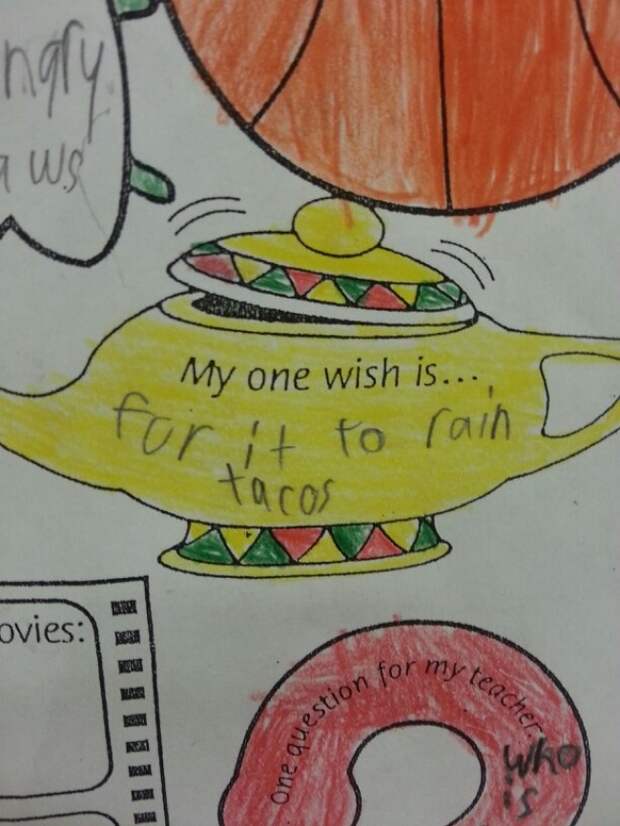 ngry
aws
My one wish is...
for it to rain
tacos
ovies:
One question for my teacher:
who
is